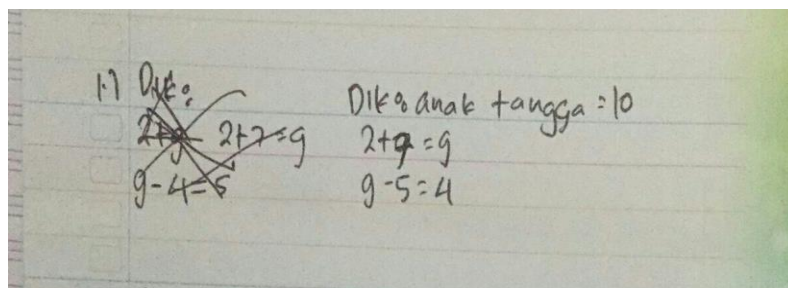 1.) Dik:
2+9 2+7=9
9-4=5
Dik: anak tangga = 10
2+7=9
9-5=4